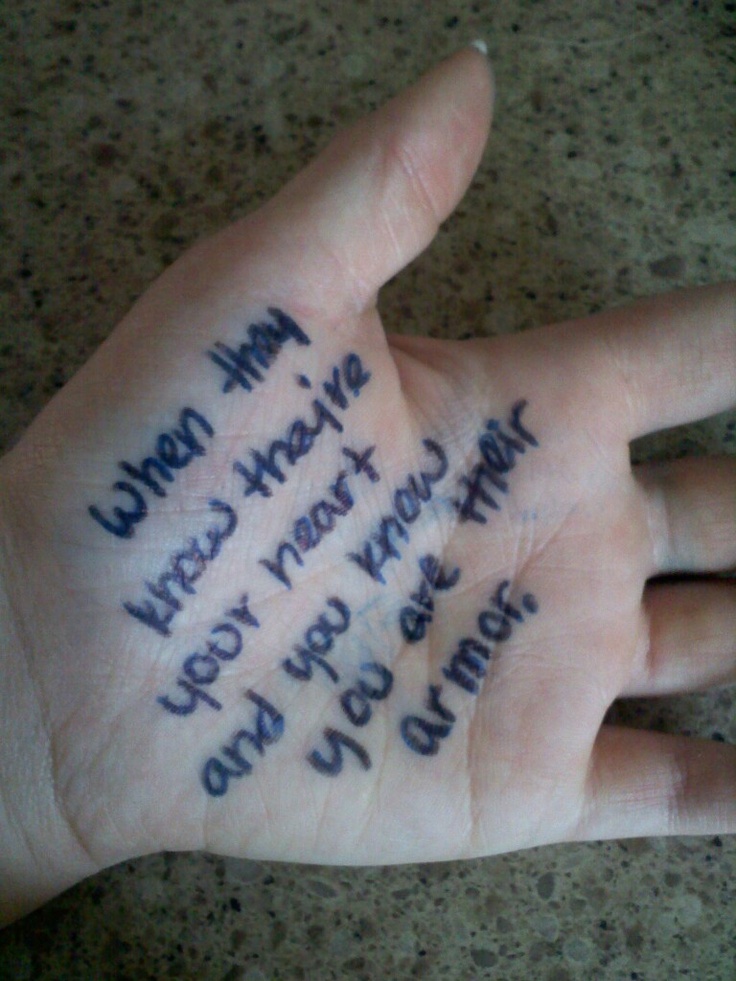 When they
know they're
your heart
and you know
you are their
armor.